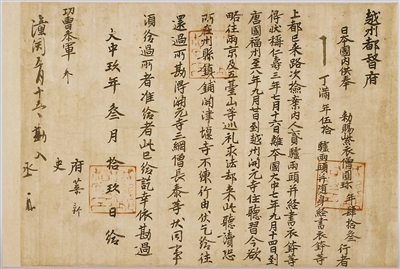 越州都督府
日本國内供奉 勅賜紫衣僧圓珍 年肆拾叁 行者
丁滿 年伍拾 驢兩頭并隨身經書衣鉢等
上都已來路次檢案内人貳驢兩頭并經書衣鉢等
得狀稱仁壽三年七月十六離本國大中七年九月十四日到
唐國福州至八年九月廿日到越州開元寺住聽習今欲
略往兩京及五臺山等巡礼求法却來此聽讀恐
所在州縣鎮鋪關津堰寺不練行由伏乞給往
還過所勘得開元寺三綱僧長泰等狀同事
須給過所者准給者此已給訖幸依勘過
大中玖年叁月拾玖日給
府葉新
功曹參軍
史
潼關五月十五日勘入
丞